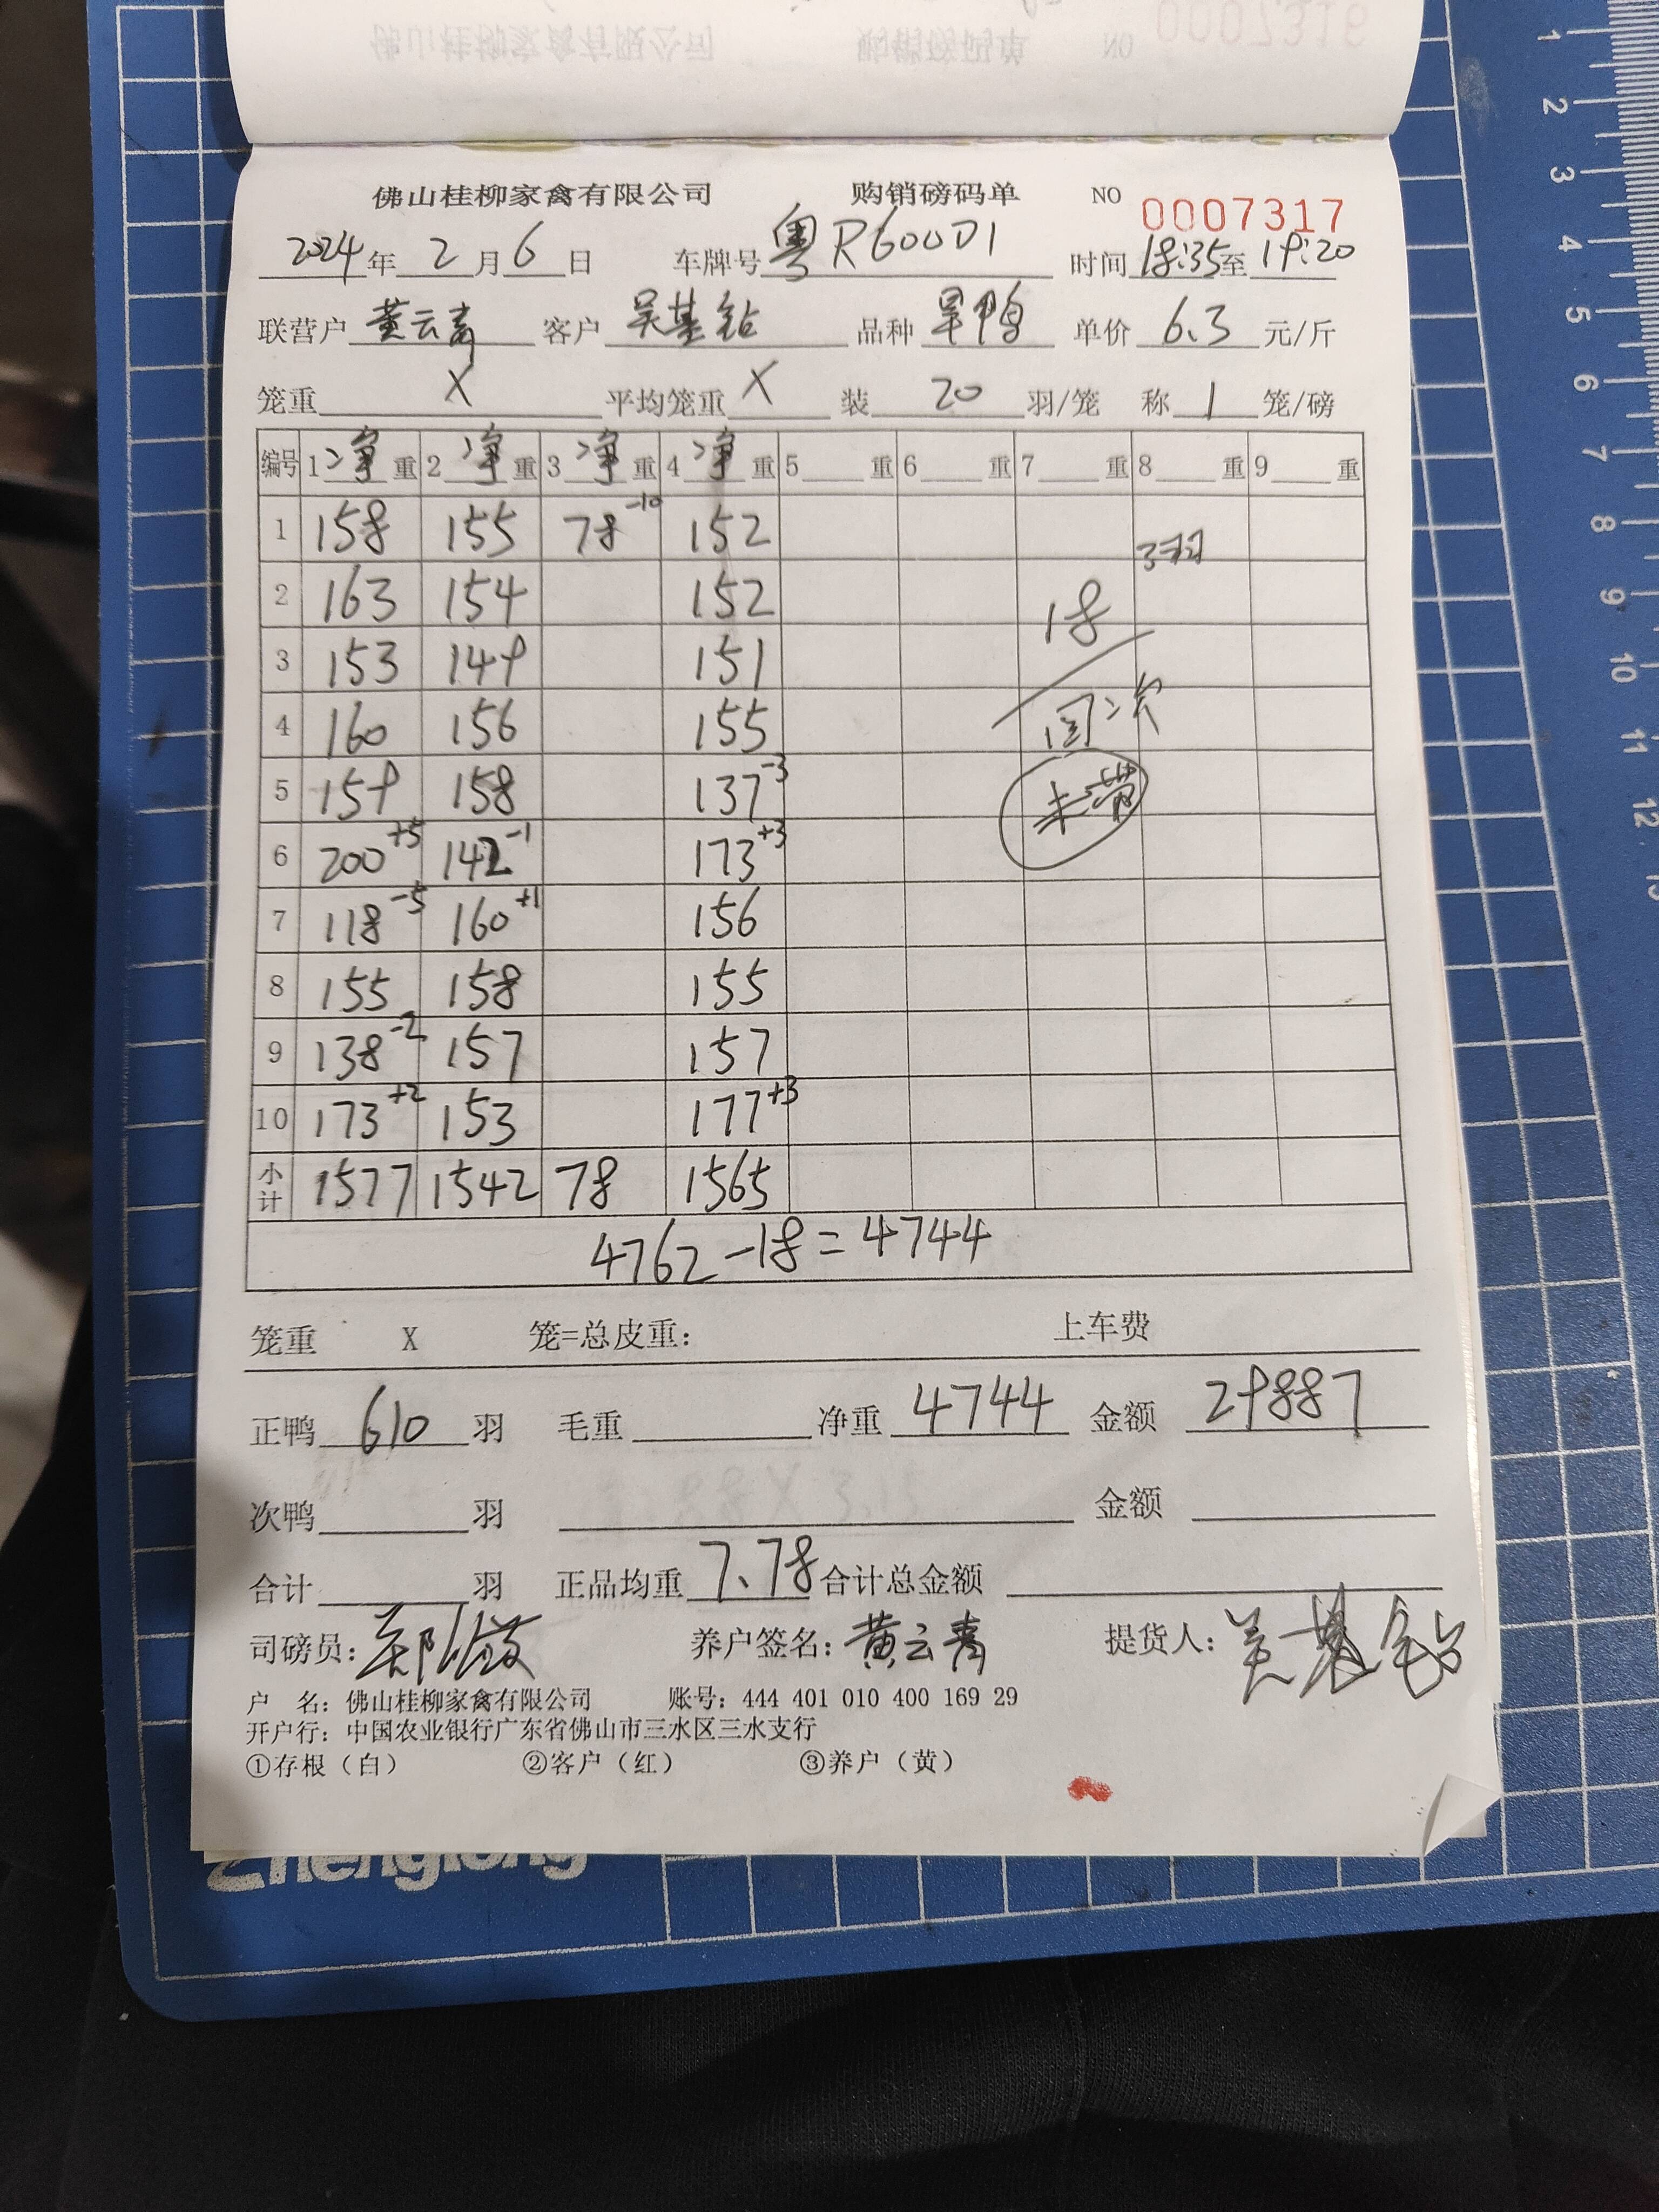 佛山桂柳家禽有限公司 购销磅码单 NO 0007317
2024年2月6日 车牌号 粤R600D1 时间 18:35至19:20
联营户 黄云青 客户 吴基钻 品种 旱鸭 单价 6.3 元/斤
笼重 X 平均笼重 X 装 20 羽/笼 称 1 笼/磅
编号 1净重 2净重 3净重 4净重 5重 6重 7重 8重 9重
1 158 155 78-10 152 3羽
2 163 154 152 18
3 153 149 151
4 160 156 155 回次
5 159 158 137-3 未带
6 200+5 142-1 173+3
7 118-5 160+1 156
8 155 158 155
9 138-2 157 157
10 173+2 153 177+3
小计 1577 1542 78 1565
4762-18=4744
笼重 X 笼=总皮重: 上车费
正鸭 610 羽 毛重 净重 4744 金额 29887
次鸭 羽 金额
合计 羽 正品均重 7.78 合计总金额
司磅员: 养户签名: 黄云青 提货人: 吴基钻
户 名: 佛山桂柳家禽有限公司 账号: 444 401 010 400 169 29
开户行: 中国农业银行广东省佛山市三水区三水支行
①存根（白） ②客户（红） ③养户（黄）
1
2
3
4
5
6
7
8
9
10
11
12
13